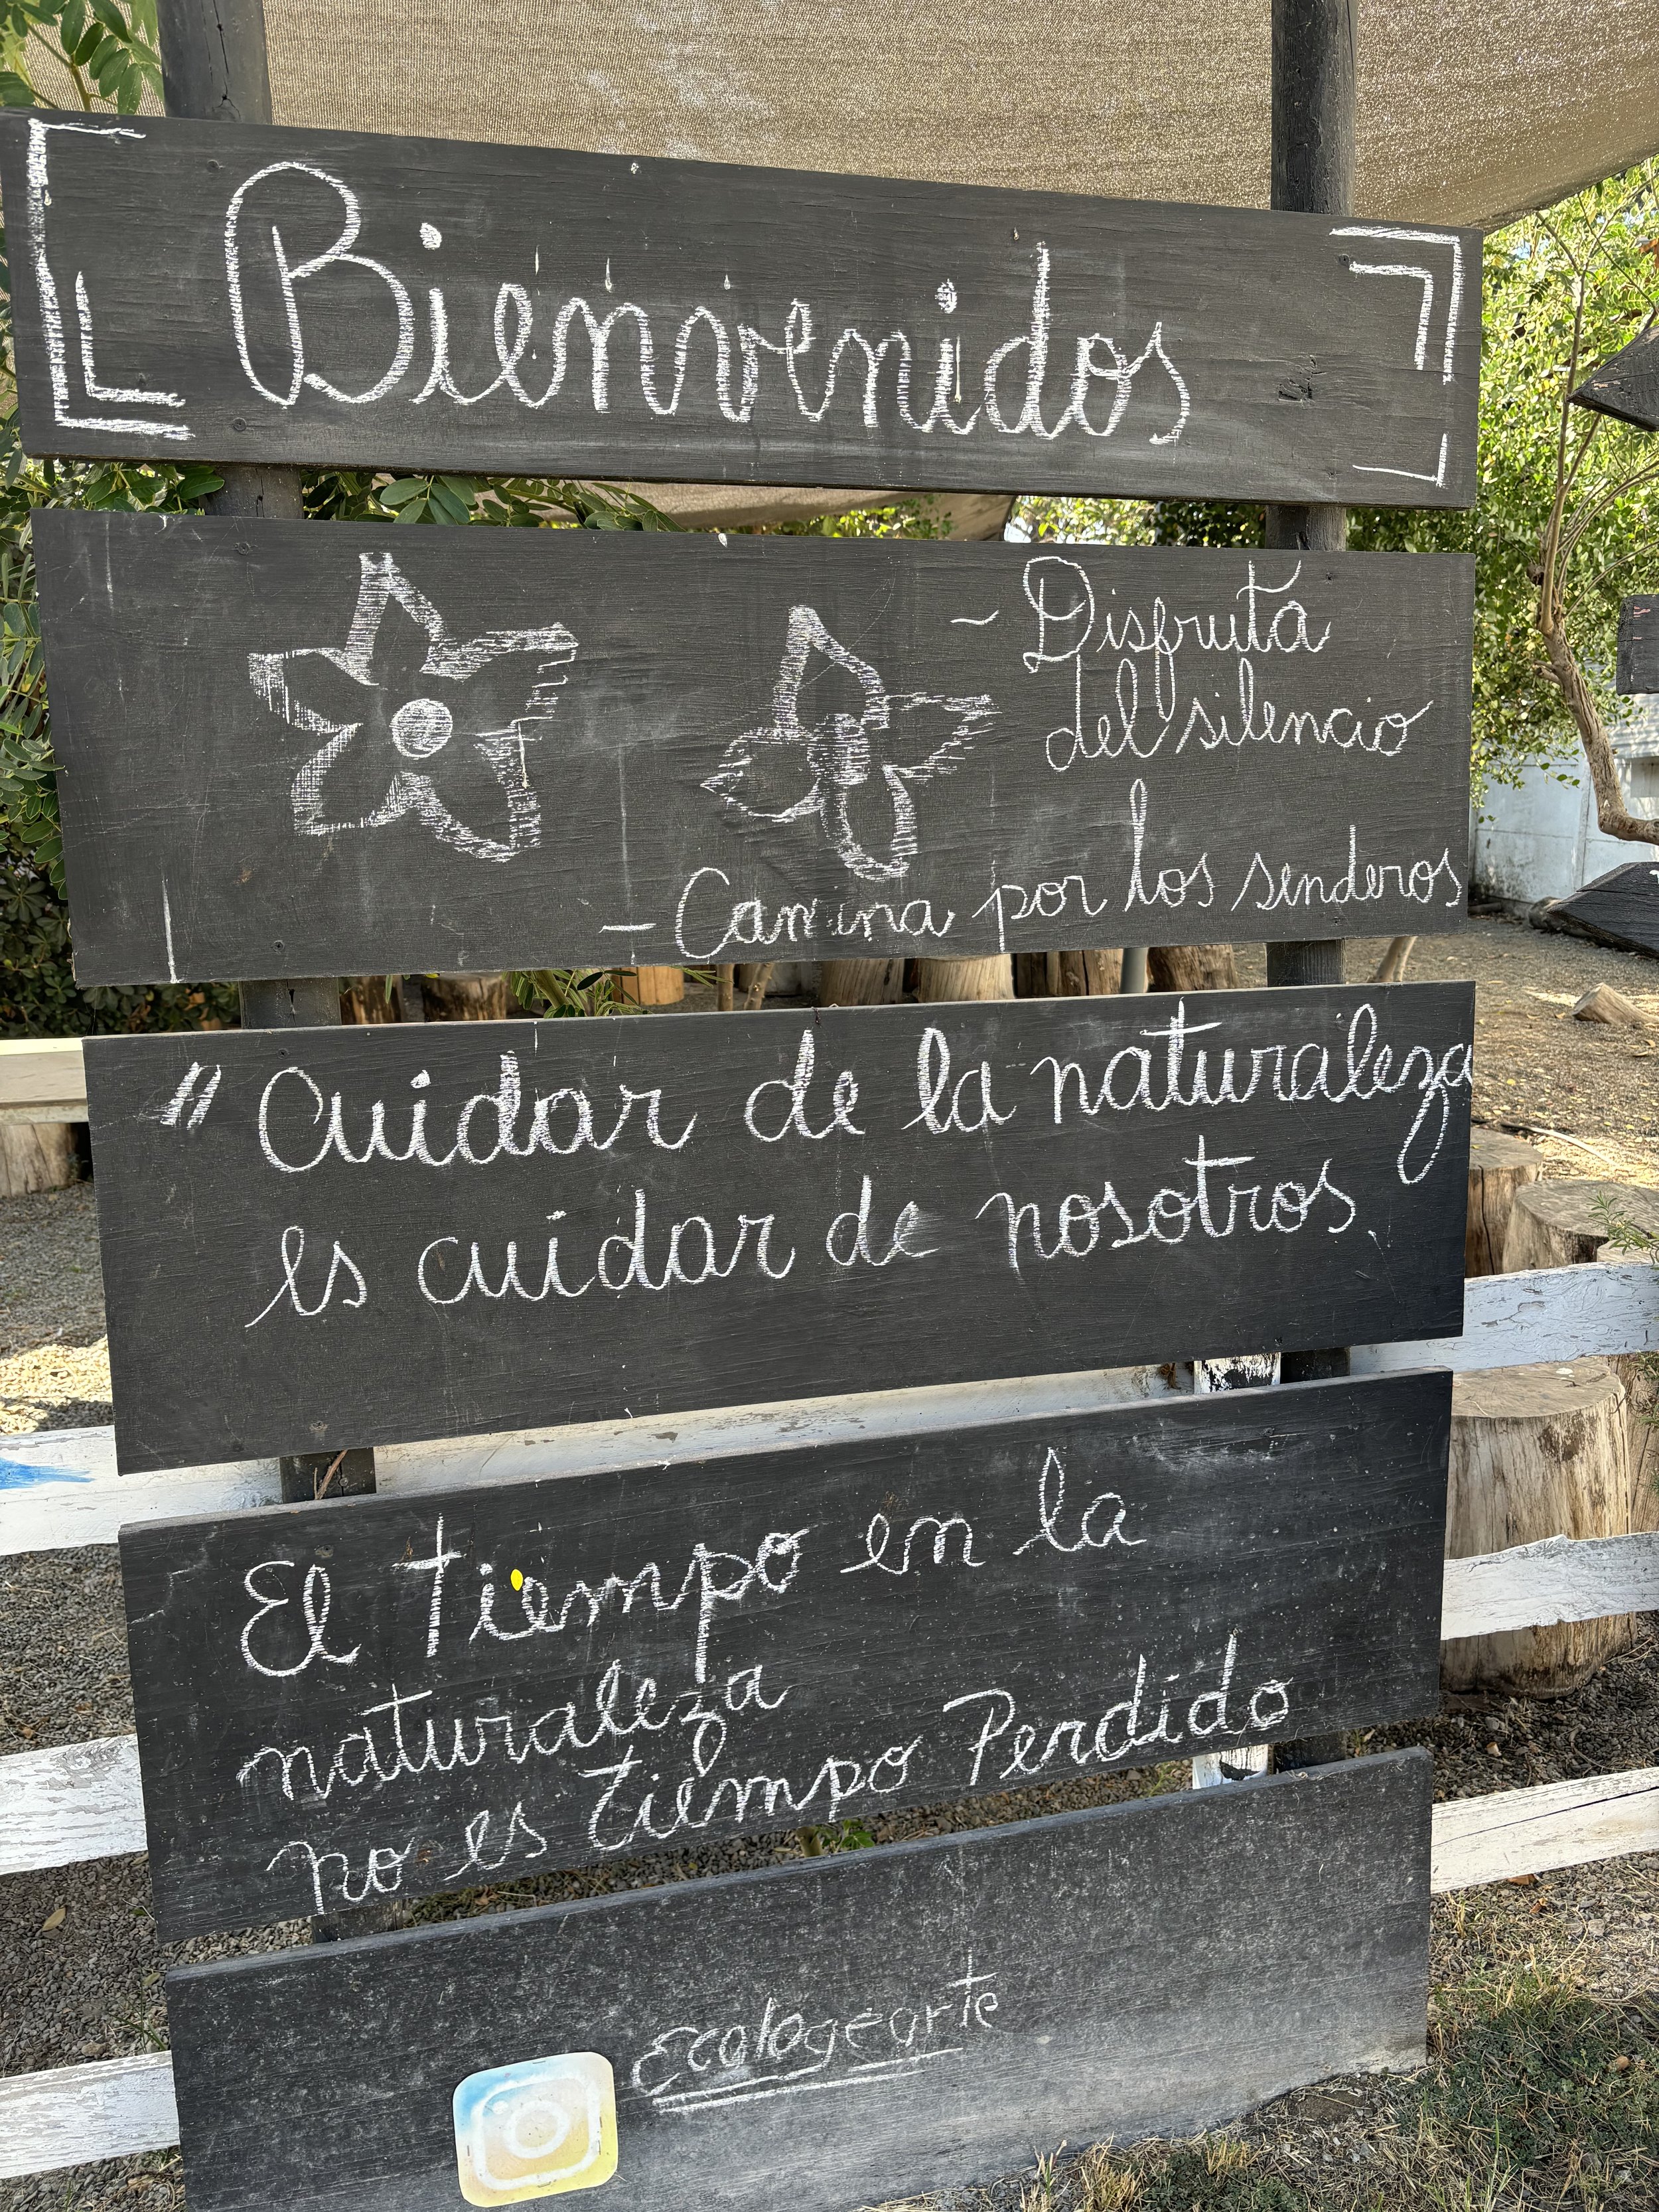 Bienvenidos
- Disfruta
del silencio
- Camina por los senderos
" Cuidar de la naturaleza
es cuidar de nosotros.
El tiempo en la
naturaleza
no es tiempo Perdido
Ecologearte